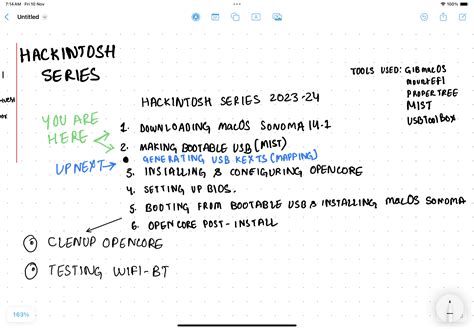 7:14 AM Fri 10 Nov
100%
Untitled
HACKINTOSH
SERIES
TOOLS USED: GIBMACOS
MOUNTEFI
PROPERTREE
MIST
USBTOOLBOX
HACKINTOSH SERIES 2023-24
YOU ARE
HERE
1. DOWNLOADING macOS SONOMA 14.1
2. MAKING BOOTABLE USB (MIST)
UPNEXT
• GENERATING USB KEXTS (MAPPING)
3. INSTALLING & CONFIGURING OPENCORE
4. SETTING UP BIOS.
5. BOOTING FROM BOOTABLE USB & INSTALLING macOS SONOMA
6. OPENCORE POST-INSTALL
① CLENUP OPENCORE
② TESTING WIFI-BT
163%